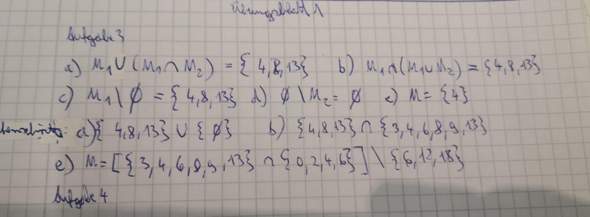 Übungsblatt 1
Aufgabe 3
a) M₁ ∪ (M₁ ∩ M₂) = {4,8,13} b) M₁ ∩ (M₁ ∪ M₂) = {4,8,13}
c) M₁ \ ∅ = {4,8,13} d) ∅ \ M₂ = ∅ e) M = {4}
a) {4,8,13} ∪ {∅} b) {4,8,13} ∩ {3,4,6,8,9,13}
e) M = [{3,4,6,8,9,13} ∩ {0,2,4,6}] \ {6,12,18}
Aufgabe 4